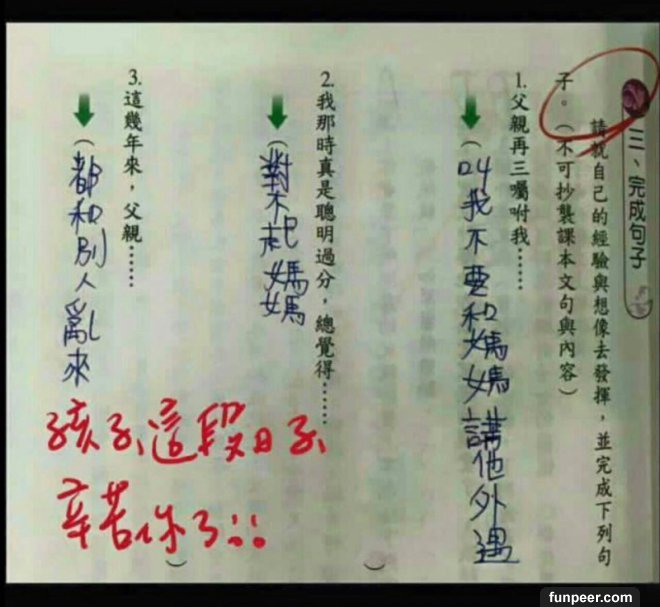 三、完成句子
請就自己的經驗與想像去發揮，並完成下列句
子。（不可抄襲課本文句與內容）
1.父親再三囑咐我……
（叫我不要和媽媽講他外遇）
2.我那時真是聰明過分，總覺得……
（對不起媽媽
3.這幾年來，父親……
（都和別人亂來）
孩子這段日子
辛苦你了
funpeer.com